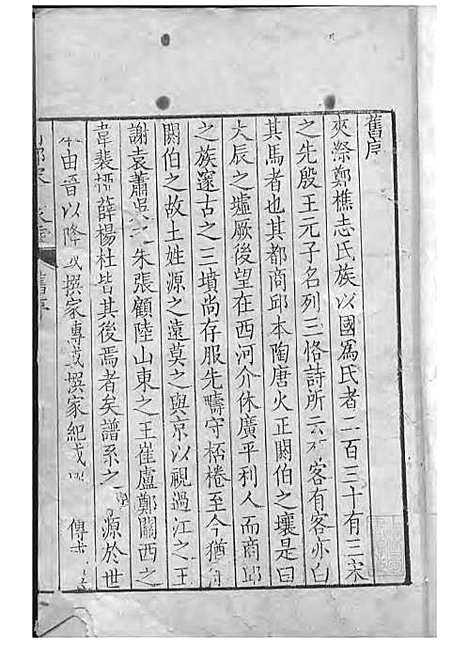 舊序
夾漈鄭樵志氏族以國爲氏者二百三十有三宋
之先殷王元子名列三恪詩所云有客有客亦白
其馬者也其都商邱本陶唐火正閼伯之壤是曰
大辰之墟厥後望在西河介休廣平利人而商邱
之族邃古之三墳尚存服先疇守桮棬至今猶
閼伯之故土姓源之遠莫之與京以視過江之王
謝袁蕭吳之朱張顧陸山東之王崔盧鄭關西之
韋裴栁薛楊杜皆其後焉者矣譜系之學源於世
本由晉以降或撰家傳或撰家紀或
傳或
舊序